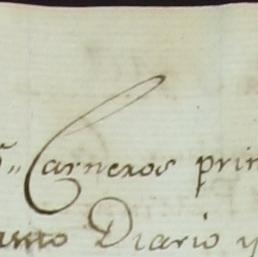 Carneros prin
Diario y